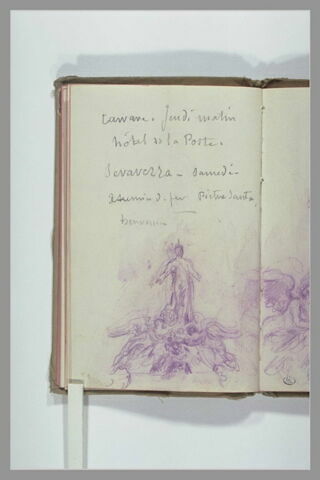 Carrare. Jeudi matin
hôtel de la Poste.
Seravezza - Samedi -
chemin de fer Pietra Santa